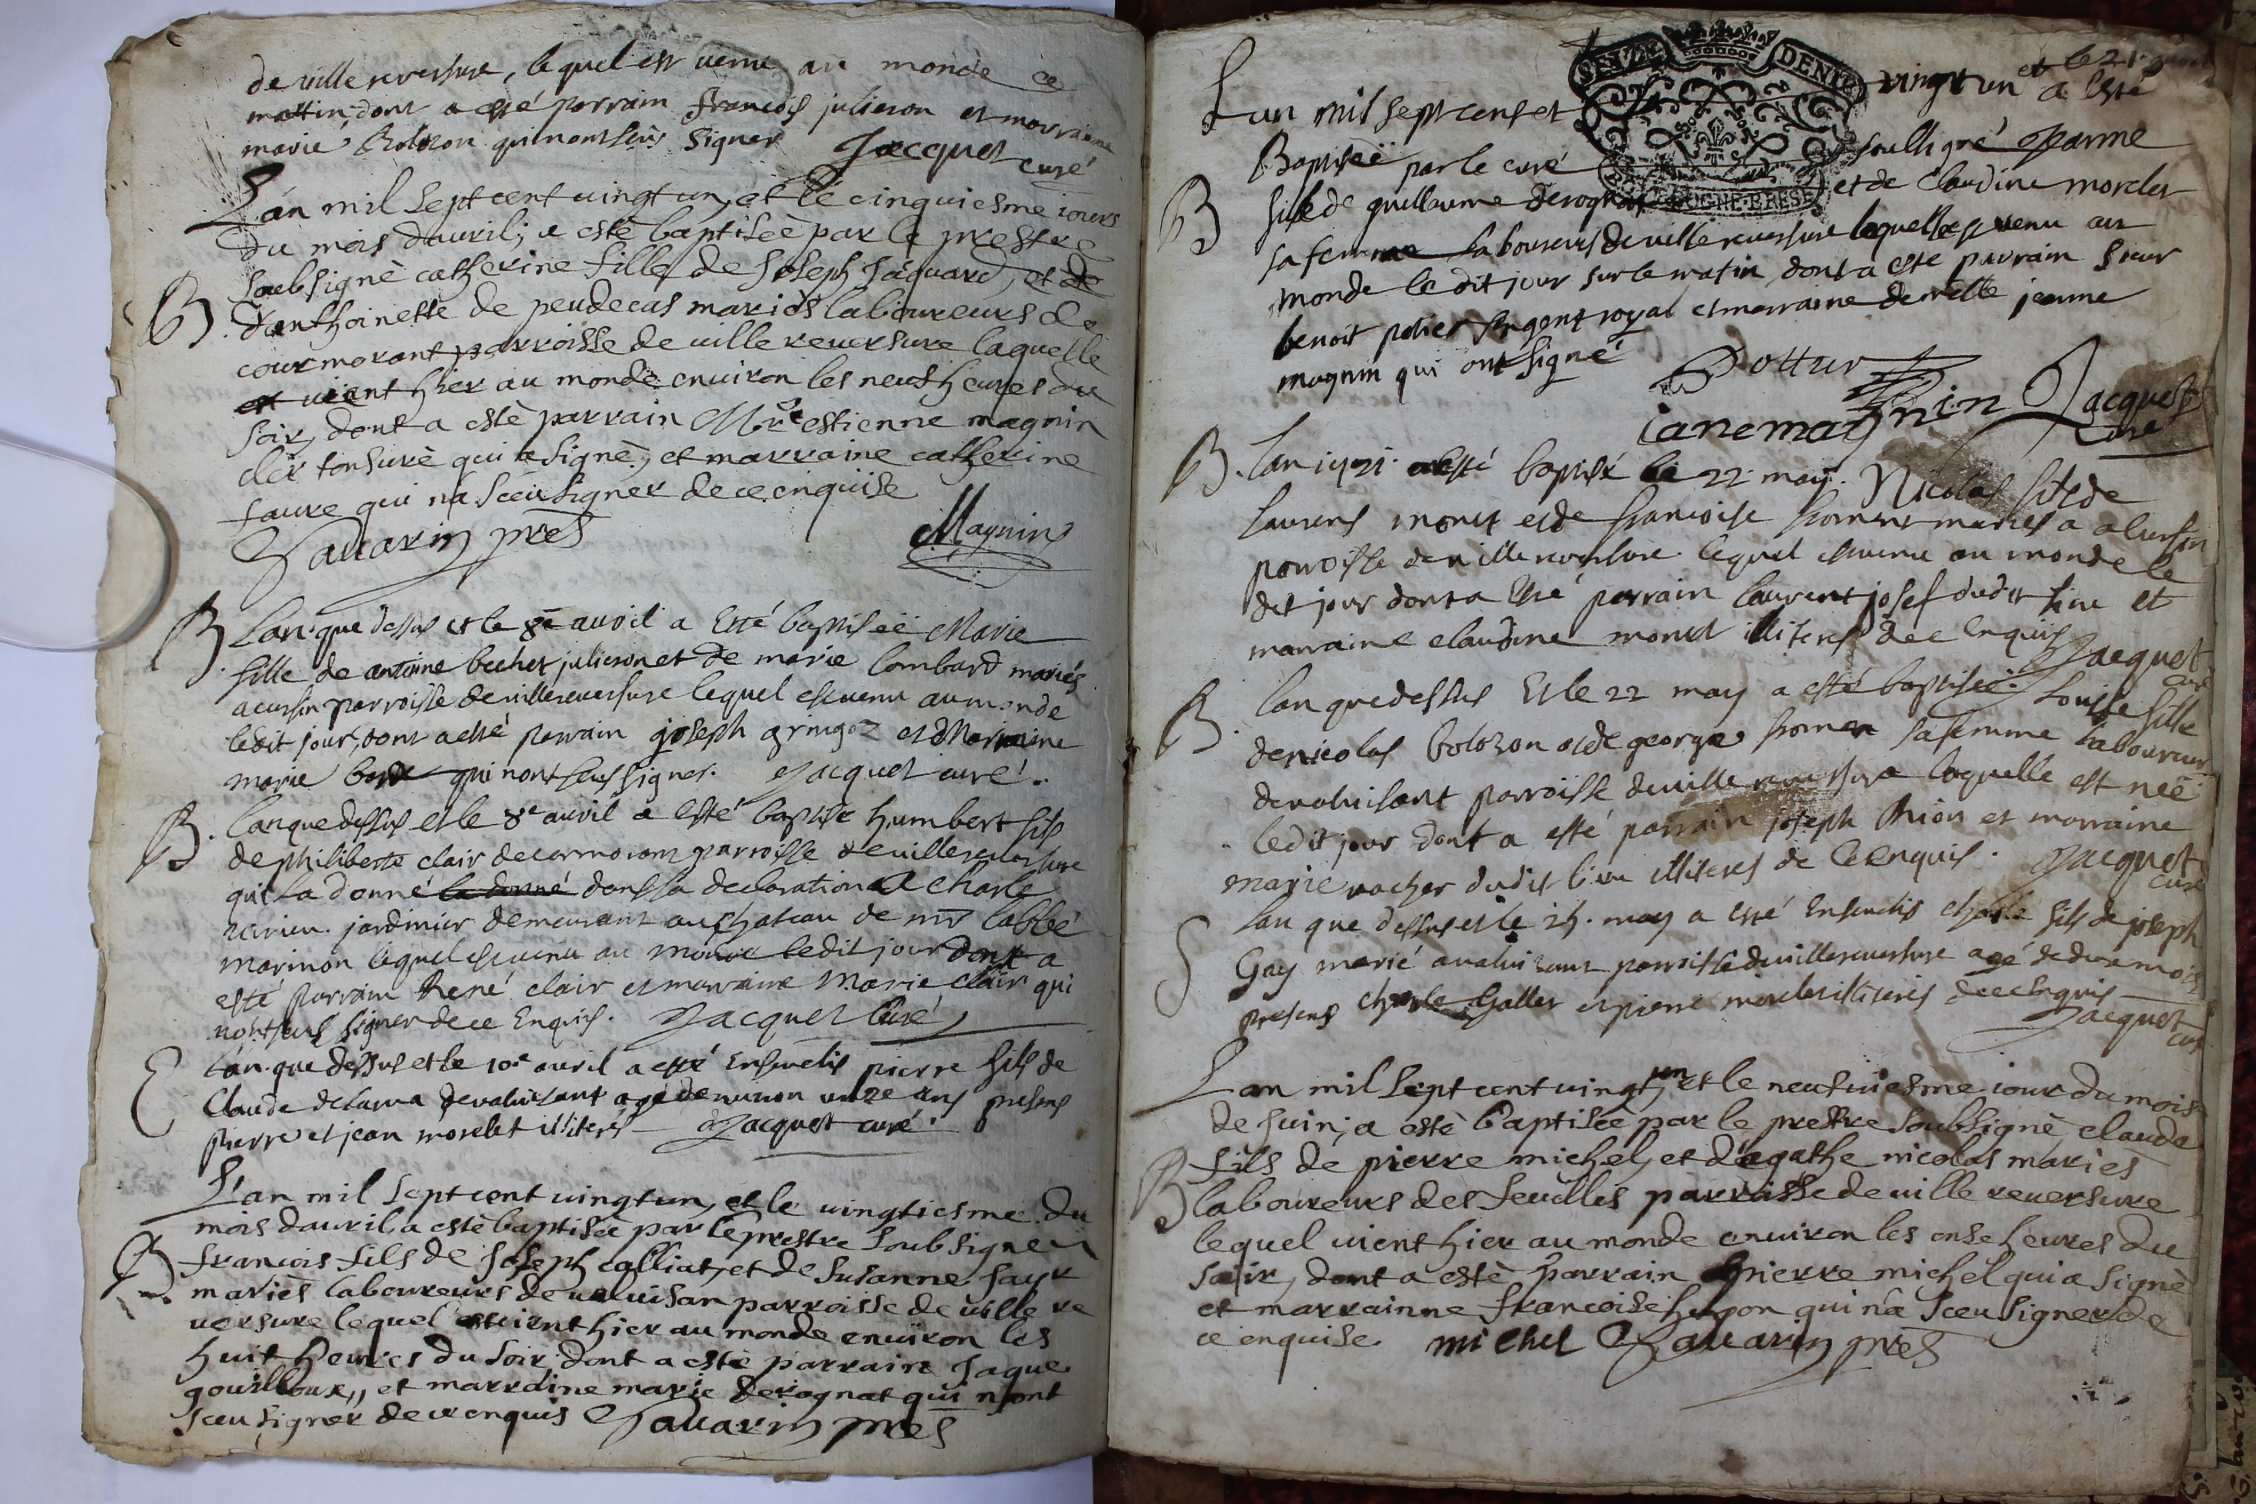 de ville reversure, lequel est venu au monde ce
mattin dont a esté parrain francois julieron et marraine
marie Bolozon qui nont sceus signer Jacquet curé
L'an mil sept cent vingt un, et le cinquiesme iours
du mois d'auril; a estè baptiseè par le prestre
soubsignè catherine fille de Joseph Jaquard, et de
d'anthoinette de peudecas mariès laboureurs de
courmorant parroisse de ville reuersure laquelle
est uient hier au monde enuiron les neuf heures du
soir, dont a estè parrain Mre estienne magnin
cler tonsurè qui a signè, et marraine catherine
faure qui n'a sceu signer de ce enquise
Sauarin pres Magnin
B Lan que dessus et le 8e auril a Esté baptiseé Marie
fille de antoine bechet julieron et de marie lombard mariés
a cursin parroisse de ville reuersure lequel est uenu au monde
ledit jour, dont a esté parrain joseph gringoz et Marraine
marie qui nont sceus signer. Jacquet curé.
B. Lan que dessus et le 8e auril a esté baptise humbert fils
de philiberte clair de cormorant parroisse de uille reuersure
qui la donné la donné dans sa declaration A charle
jardinier demeurant au chateau de mr labbé
marinon lequel est uenu au monde ledit jour dont a
esté parrain René clair et marraine Marie clair qui
nont sceus signer de ce Enquis. Jacquet Curé
E Lan que dessus et le 10e auril a esté Enseuelis pierre fils de
Claude delarua deualuisant agé denuiron unze ans presens
pierre et jean morelet illiterés Jacquet curé.
L'an mil sept cent uingt un, et le uingtiesme du
mois d'auril a estè baptiseè par le prestre soubsigne
B francois fils de Joseph calliat, et de Susanne fayr
mariès laboureurs de ualuisan parroisse de uille re
uersure lequel est uient hier au monde enuiron les
huit heures du soir dont a estè parraine Jaque
gouilloux, et marraine marie derognat qui n'ont
sceu signer de ce enquis Sauarin pres
Lan mil sept cens et vingt un et le 21 auril a esté
Baptiseé par le curé soussigné Janne
B fille de guillaume derognat et de claudine morelet
sa femme laboureurs de ville reuersure laquelle est venu au
monde le dit jour sur le matin, dont a esté parrain sieur
benoit potier sergent royal et marraine demelle jeanne
magnin qui ont signé
Pottier
ianemagnin Jacquet
Curé
B. Lan 1721 a esté baptisé le 22 may. Nicolas fils de
laurens monet et de francoise mariés a a Cursin
parroisse de ville reuersure lequel est uenu au monde le
dit jour dont a esté parrain laurent josef dudit lieu et
marraine claudine monet illiterés de ce Enquis Jacquet
curé
B. lan que dessus Et le 22 may a esté baptiseé Louise fille
de nicolas bolozon et de george sa femme laboureur
de ualuisant parroisse de uille reuersure laquelle est neé
ledit jour dont a esté parrain joseph Brion et marraine
marie vacher dudit lieu illiterés de ce Enquis. Jacquet
curé
S lan que dessus et le 25. may a esté Enseuelis charle fils de joseph
Gay marié a ualuisant parroisse de uille reuersure agé de deux mois
presens charle Galler et pierre morelet illiterés de ce Enquis
Jacquet
curé
L'an mil sept cent uingt un et le neufuiesme iour du mois
de Juin; a estè baptiseè par le prestre soubsignè, claude
B fils de pierre michel, et d'agathe nicolas mariès
laboureurs des feuilles parroisse de uille reuersure
lequel uient hier au monde enuiron les onse heures du
soir, dont a estè parrain pierre michel qui a signè
et marrainne francoise hugon qui n'a sceu signer de
ce enquise. michel Sauarin pres